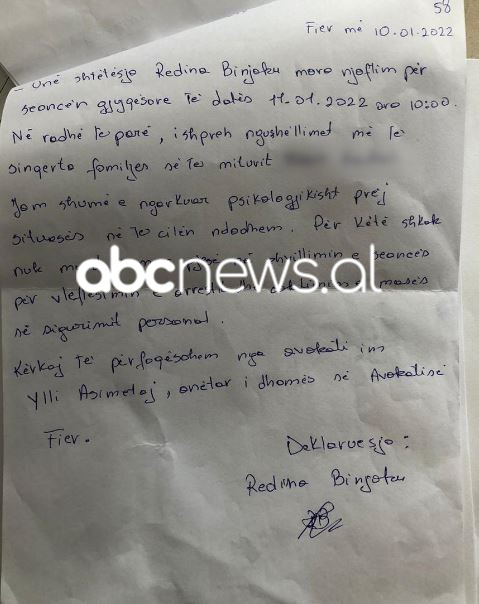 58
Fier më 10.01.2022
- Unë shtetësja Redina Binjaku mora njoftim për
seancën gjyqësore të datës 11.01.2022 ora 10:00.
Në radhë të parë, i shpreh ngushëllimet më të
sinqerta familjes së të miturit
Jam shumë e ngarkuar psikologjikisht prej
situatës në të cilën ndodhem. Për këtë shkak
nuk zhvillimin e seancës
abcnews.al
për vleftësimin e arrestit e masës
së sigurimit personal.
Kërkoj të përfaqësohem nga avokati im
Ylli Asimetaj, anëtar i dhomës së Avokatisë
Fier.
Deklaruesja:
Redina Binjaku